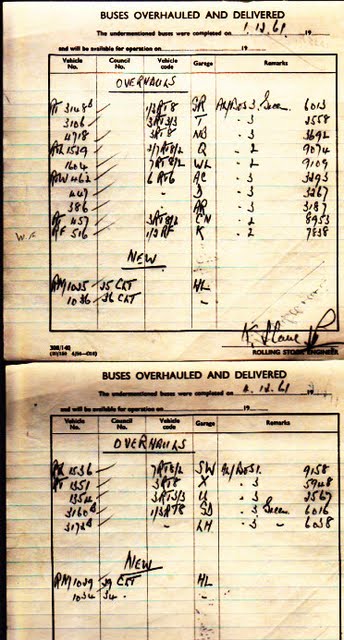 BUSES OVERHAULED AND DELIVERED
The undermentioned buses were completed on 1.12.61 19
and will be available for operation on 19
Vehicle No. Council No. Vehicle code Garage Remarks
OVERHAULS
RT 3148B 1/3RT8 SR 3 6013
3106 3RT3/3 T - 3 3558
4718 3RT8 NB - 3 3692
1529 3/7RT8/2 Q - 2 9074
1604 7RT8/2 WL - 2 9109
RTW 462 6RT6 AC - 3 3293
447 - D - 3 3267
386 - AR - 3 3187
457 3RT8/2 CN - 2 8953
W.F RF 516 1/2RF K - 2 7838
NEW
RM1035 35 CLT WL
1036 36 CLT -
388/140
ROLLING STOCK ENGINEER
BUSES OVERHAULED AND DELIVERED
The undermentioned buses were completed on 12.61 19
and will be available for operation on 19
Vehicle No. Council No. Vehicle code Garage Remarks
OVERHAULS
1536 7RT8/2 SW 9158
RT 1351 3RT8 X - 3 5948
1354 3RT3/3 U - 3 3567
3160B 1/3RT8 SD - 3 6016
3172B - LH - 3 - 6038
NEW
RM1029 29 CLT WL
1034 34 - -